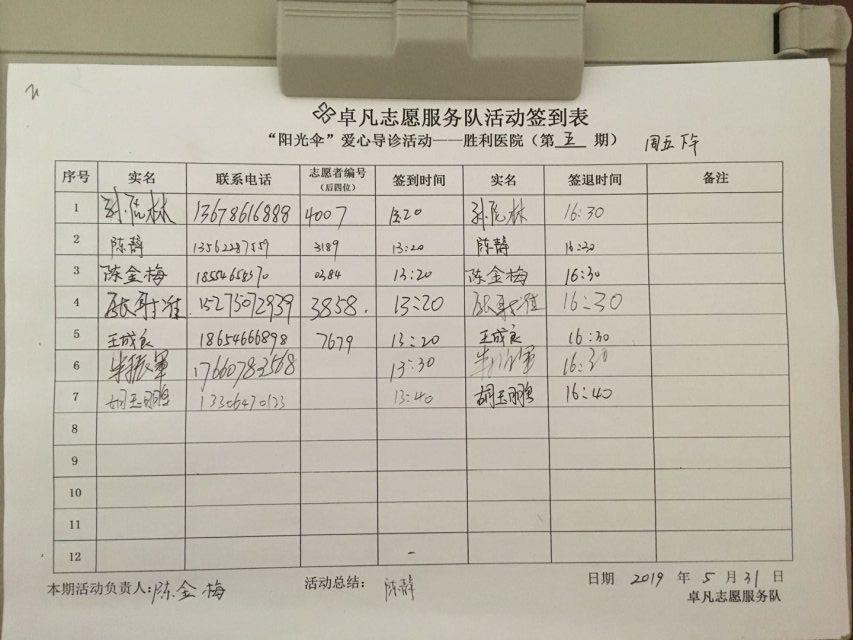 卓凡志愿服务队活动签到表
“阳光伞”爱心导诊活动——胜利医院（第 五 期） 周五下午
序号 实名 联系电话 志愿者编号（后四位） 签到时间 实名 签退时间 备注
1 13678616888 4007 13:20 16:30
2 陈静 13562287559 3189 13:20 陈静 16:30
3 陈金梅 0384 13:20 陈金梅 16:30
4 15275072939 3858. 13:20 16:30
5 王成良 18654666898 7679 13:20 王成良 16:30
6 17660783568 13:30 16:30
7 胡玉鹏 13306470133 13:40 胡玉鹏 16:40
8
9
10
11
12
本期活动负责人:陈金梅 活动总结： 陈静 日期 2019 年 5 月 31 日
卓凡志愿服务队